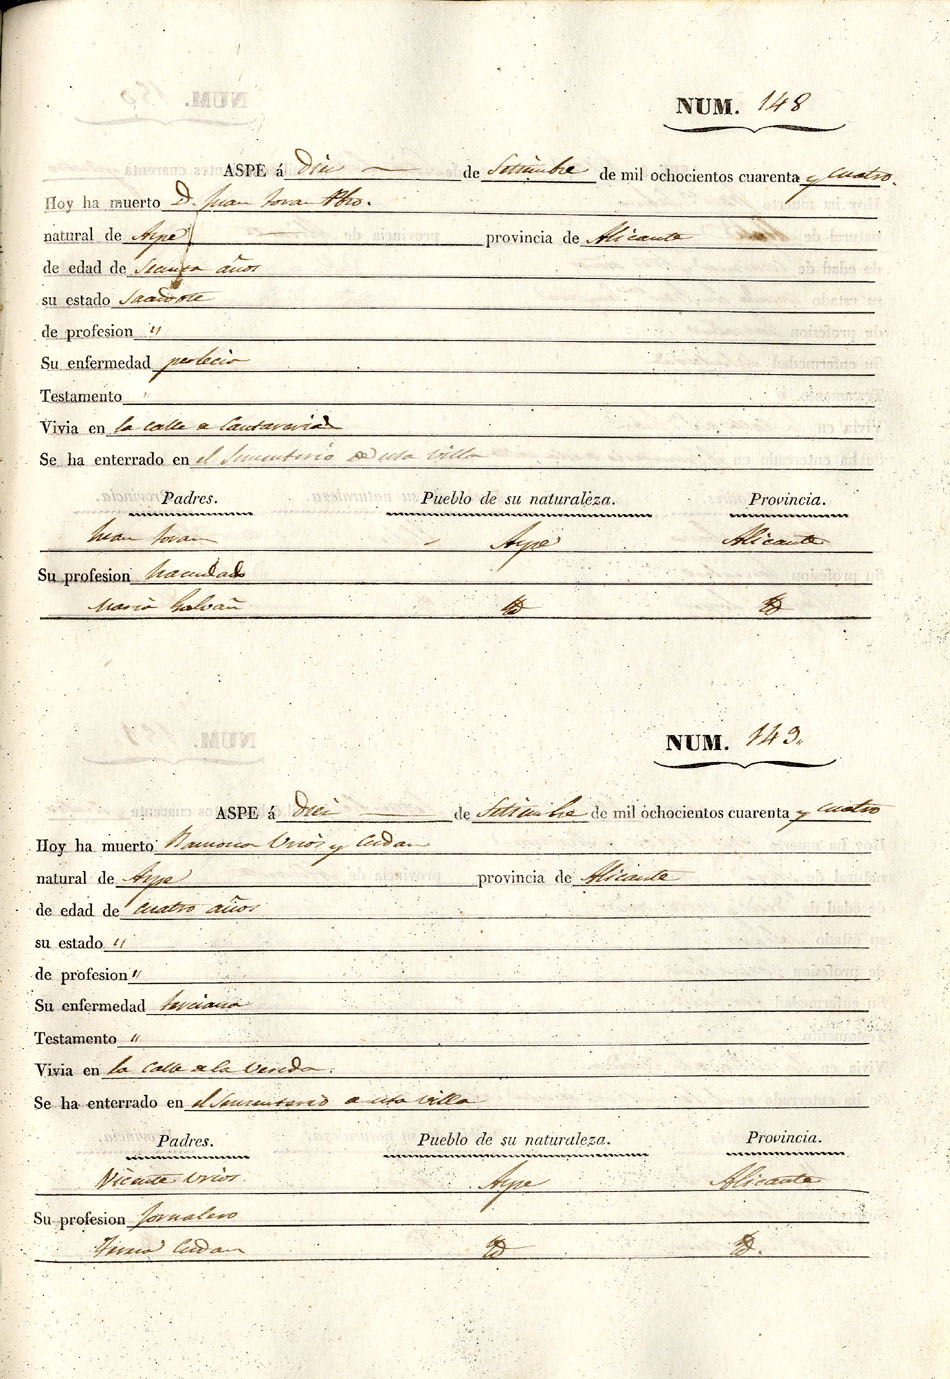 NUM. 148
ASPE á Diez de Setiembre de mil ochocientos cuarenta y cuatro.
Hoy ha muerto D. Juan Jovan Pbro.
natural de Aspe provincia de Alicante
de edad de años
su estado
de profesion "
Su enfermedad perlecia
Testamento "
Vivia en la calle
Se ha enterrado en el Sementerio de esta Villa
Padres. Pueblo de su naturaleza. Provincia.
Juan Jovan - Aspe Alicante
Su profesion hacendado
Maria Galvañ Yd Yd
NUM. 149.
ASPE á Diez de Setiembre de mil ochocientos cuarenta y cuatro
Hoy ha muerto Ramona Urios y
natural de Aspe provincia de Alicante
de edad de cuatro años
su estado "
de profesion "
Su enfermedad terciana
Testamento "
Vivia en la Calle de la Vereda.
Se ha enterrado en el Sementerio de esta Villa
Padres. Pueblo de su naturaleza. Provincia.
Vicente Urios Aspe Alicante
Su profesion Jornalero
Yd Yd.